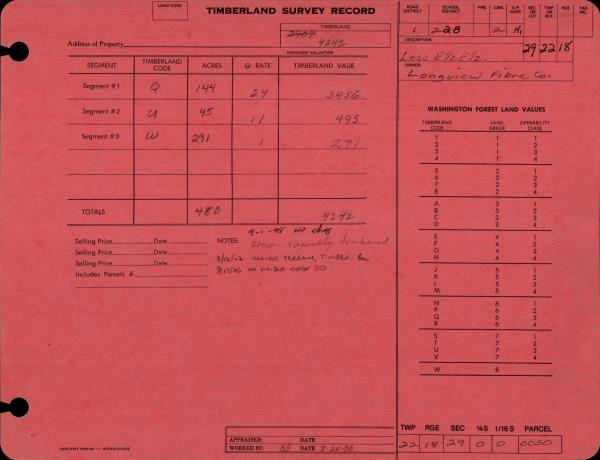 LAND CODE
TIMBERLAND SURVEY RECORD
TIMBERLAND
3969
Address of Property 4242
ASSESSED VALUATION
SEGMENT TIMBERLAND CODE ACRES @ RATE TIMBERLAND VALUE
Segment #1 Q 144 24 3456
Segment #2 U 45 11 495
Segment #3 W 291 1 291
TOTALS 480 4242
9-1-98 no chg
Selling Price Date NOTES: Steep
Selling Price Date 8/12/02 VARIOUS TERRAIN, TIMBER
Selling Price Date 8/17/06 NO VALUE CHGS DO
Includes Parcels #
INSTANT PRESS — WENATCHEE
APPRAISER: DATE
WORKED BY: DATE 3-20-90
ROAD DISTRICT SCHOOL DISTRICT FIRE CEM. A.P. HOSP. SEC. OR LOT TWP OR BLK. RGE TAX NO.
1 228 2 H1 29 22 18
DESCRIPTION
Less E½E½
OWNER
Longview Fibre Co.
WASHINGTON FOREST LAND VALUES
TIMBERLAND CODE LAND GRADE OPERABILITY CLASS
1 1 1
2 1 2
3 1 3
4 1 4
5 2 1
6 2 2
7 2 3
8 2 4
A 3 1
B 3 2
C 3 3
D 3 4
E 4 1
F 4 2
G 4 3
H 4 4
J 5 1
K 5 2
L 5 3
M 5 4
N 6 1
P 6 2
Q 6 3
R 6 4
S 7 1
T 7 2
U 7 3
V 7 4
W 8
TWP RGE SEC ¼S 1/16 S PARCEL
22 18 29 0 0 0050